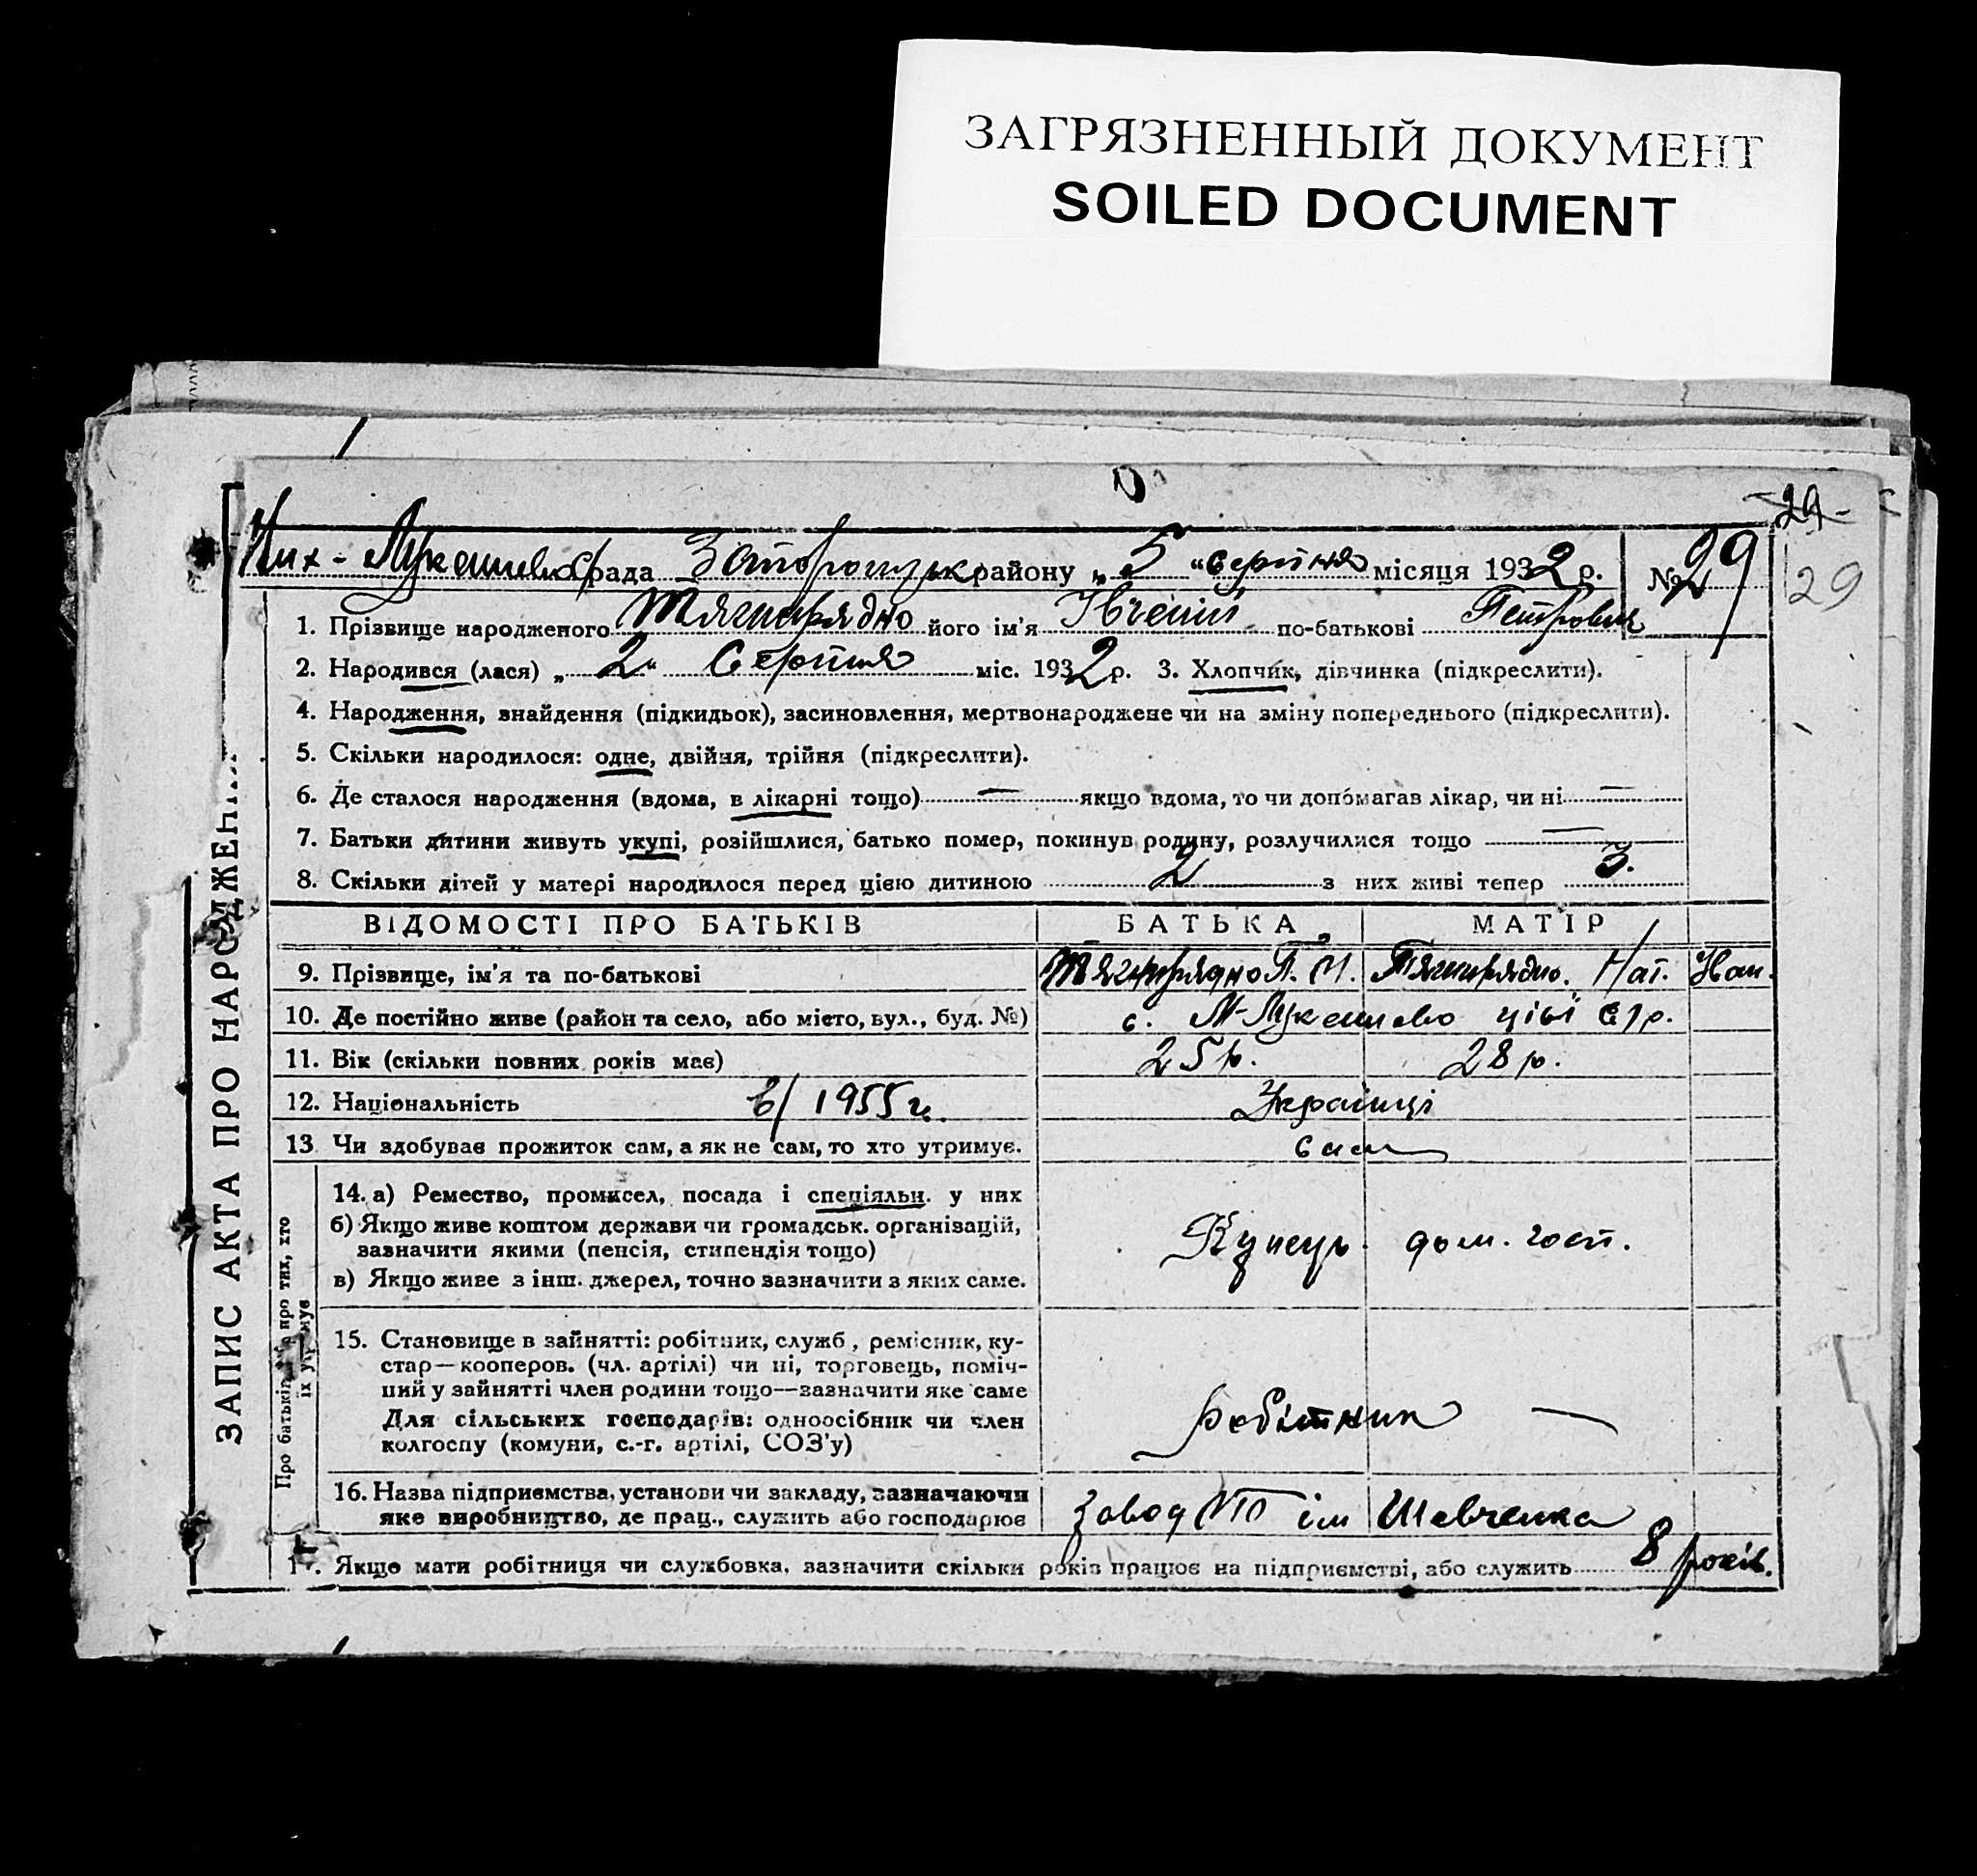 ЗАГРЯЗНЕННЫЙ ДОКУМЕНТ
SOILED DOCUMENT
29
Мих-Лукашево с/рада Запорозьк району „5“ серпня місяця 1932 р. № 29
29
1. Прізвище народженого Тягнирядно його ім'я Івгеній по-батькові Петрович
2. Народився (лася) „2“ Серпня міс. 1932 р. 3. Хлопчик, дівчинка (підкреслити).
4. Народження, знайдення (підкидьок), засиновлення, мертвонароджене чи на зміну попереднього (підкреслити).
5. Скільки народилося: одне, двійня, трійня (підкреслити).
6. Де сталося народження (вдома, в лікарні тощо) — якщо вдома, то чи допомагав лікар, чи ні —
7. Батьки дитини живуть укупі, розійшлися, батько помер, покинув родину, розлучилися тощо —
8. Скільки дітей у матері народилося перед цією дитиною 2 з них живі тепер 3.
ВІДОМОСТІ ПРО БАТЬКІВ БАТЬКА МАТІР
9. Прізвище, ім'я та по-батькові Тягнирядно П. М. Тягнирядно. Нат.
10. Де постійно живе (район та село, або місто, вул., буд. №) с. М-Лукашево ціві с/р.
11. Вік (скільки повних років має) 25 р. 28 р.
12. Національність в/ 1955 г. Українці
13 Чи здобуває прожиток сам, а як не сам, то хто утримує. сам
14. а) Ремество, промисел, посада і спеціяльн. у них
б) Якщо живе коштом держави чи громадськ. організацій,
зазначити якими (пенсія, стипендія тощо) дом. госп.
в) Якщо живе з інш. джерел, точно зазначити з яких саме.
15. Становище в зайнятті: робітник, служб, ремісник, ку-
стар—кооперов. (чл. артілі) чи ні, торговець, поміч-
ний у зайнятті член родини тощо—зазначити яке саме
Для сільських господарів: одноосібник чи член Робітник —
колгоспу (комуни, с.-г. артілі, СОЗ'у)
16. Назва підприємства, установи чи закладу, зазначаючи
яке виробництво, де прац., служить або господарює завод ім Шевченка
17. Якщо мати робітниця чи службовка, зазначити скільки років працює на підприємстві, або служить 8 років.
ЗАПИС АКТА ПРО НАРОДЖЕННЯ
Про батьків та про тих, хто
їх утримує